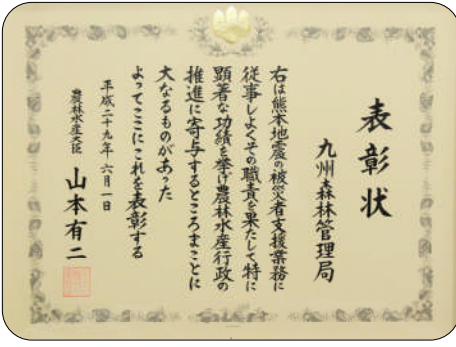 表彰状
九州森林管理局
右は熊本地震の被災者支援業務に
従事しよくその職責を果たして特に
顕著な功績を挙げ農林水産行政の
推進に寄与するところまことに
大なるものがあった
よってここにこれを表彰する
平成二十九年六月一日
農林水産大臣 山本有二